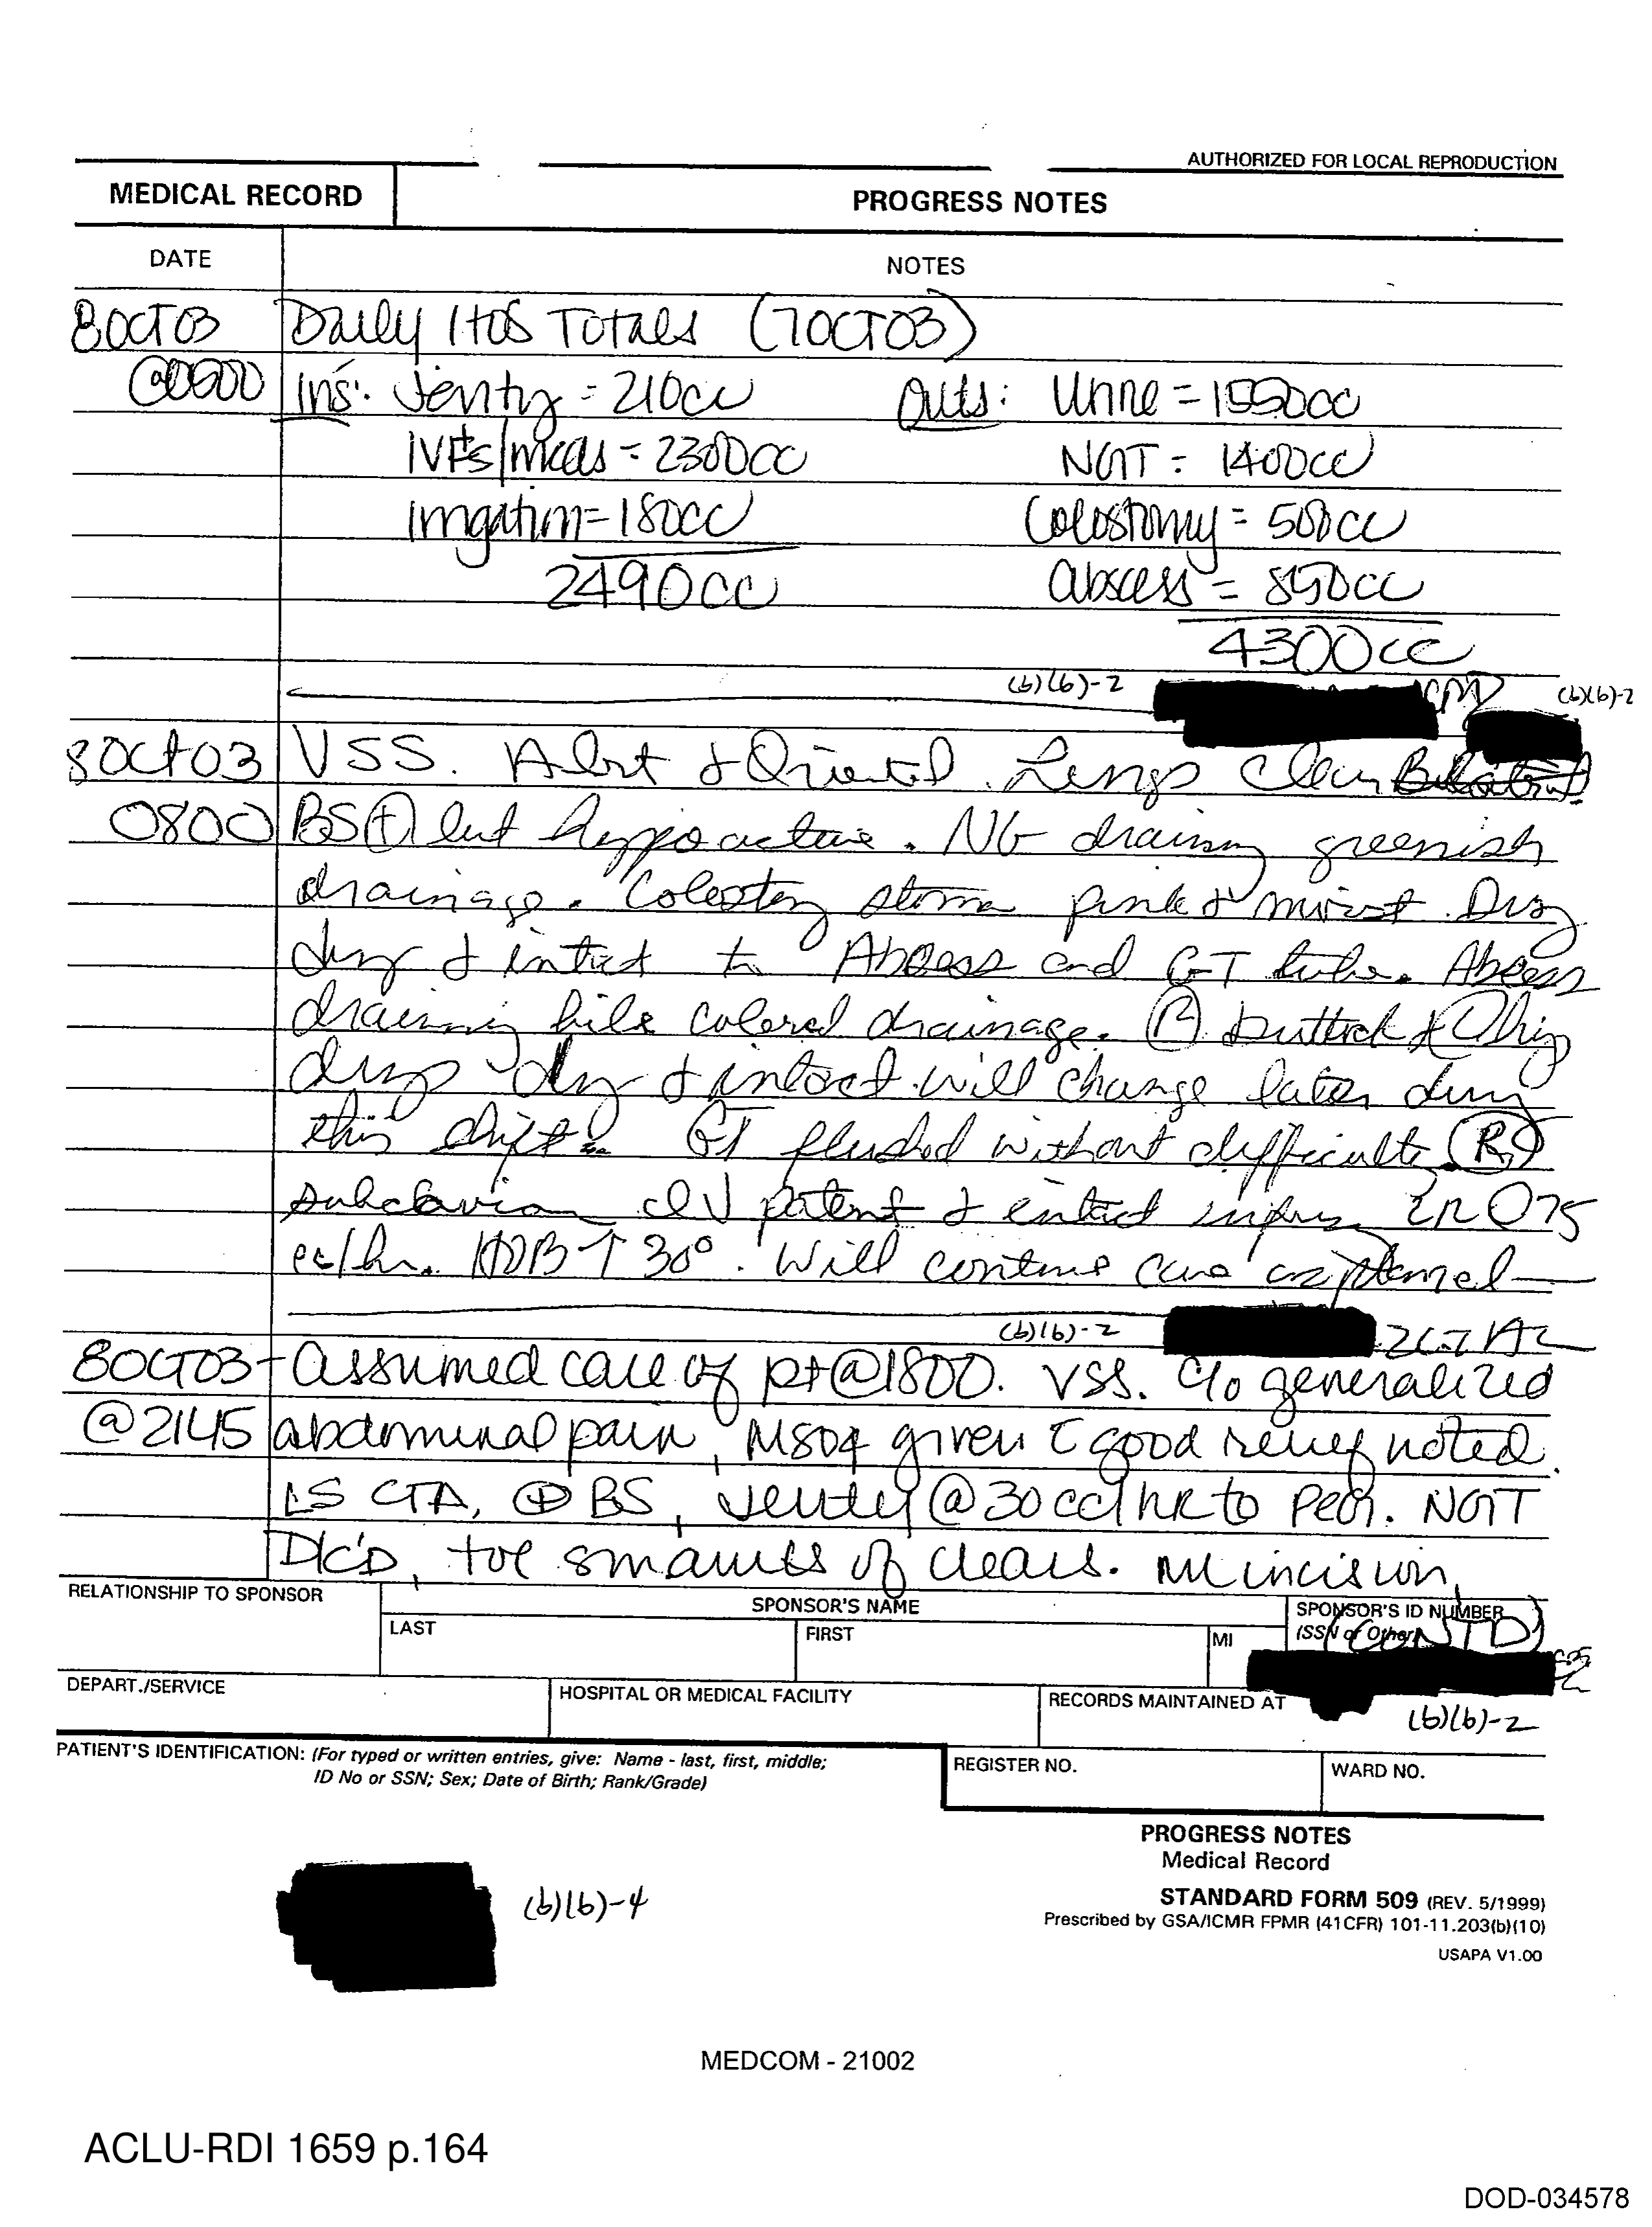 AUTHORIZED FOR LOCAL REPRODUCTION
MEDICAL RECORD PROGRESS NOTES
DATE NOTES
8OCT03 Daily I+O's Totals (7OCT03)
Ins: Jevity = 210cc Outs: Urine = 1550cc
IVFs/meds = 2300cc NGT = 1400cc
Irrigation = 180cc Colostomy = 500cc
2490cc abscess = 850cc
4300cc
(b)(6)-2 (b)(6)-2
8Oct03 VSS. Alert & Oriented. Lungs Clear
0800 BS ⊕ but hypoactive. NG draining greenish
drainage. Colostomy stoma pink & moist. Drsg
dry & intact to Abcess and GT tube. Abcess
draining bile colored drainage. buttock & hip
drsgs dry & intact will change later during
this shift. GT flushed without difficulty. (R)
subclavian IV patent & intact infusing @ 75
cc/hr. HOB ↑ 30°. Will continue care as planned
(b)(6)-2
8OCT03 - Assumed care of pt @ 1800. VSS. c/o generalized
@2145 abdominal pain, MSO4 given c̄ good relief noted.
LS CTA, ⊕ BS, Jevity @ 30cc/hr to Peg. NGT
D/C'd, tol sm amts of clears. incision,
RELATIONSHIP TO SPONSOR SPONSOR'S NAME SPONSOR'S ID NUMBER
LAST FIRST MI (SSN or Other) (CONTD)
DEPART./SERVICE HOSPITAL OR MEDICAL FACILITY RECORDS MAINTAINED AT
(b)(6)-2
PATIENT'S IDENTIFICATION: (For typed or written entries, give: Name - last, first, middle; REGISTER NO. WARD NO.
ID No or SSN; Sex; Date of Birth; Rank/Grade)
PROGRESS NOTES
Medical Record
(b)(6)-4
STANDARD FORM 509 (REV. 5/1999)
Prescribed by GSA/ICMR FPMR (41CFR) 101-11.203(b)(10)
USAPA V1.00
MEDCOM - 21002
ACLU-RDI 1659 p.164
DOD-034578